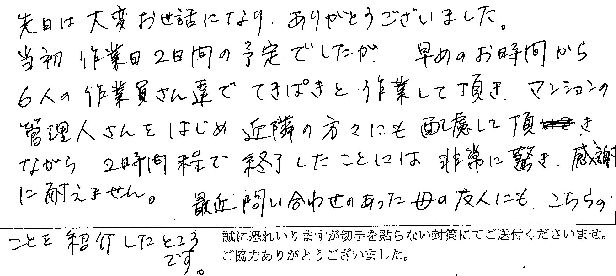 先日は大変お世話になり、ありがとうございました。
当初 作業日2日間の予定でしたが 早めのお時間から
6人の作業員さん達で てきぱきと 作業して頂き、マンションの
管理人さんをはじめ 近隣の方々にも 配慮して頂き
ながら 2時間程で 終了したことには 非常に驚き、感謝
に耐えません。 最近 問い合わせのあった 母の友人にも、こちらの
ことを紹介したところ
です。
誠に恐れいりますが切手を貼らない封筒にてご送付くださいませ。
ご協力ありがとうございました。